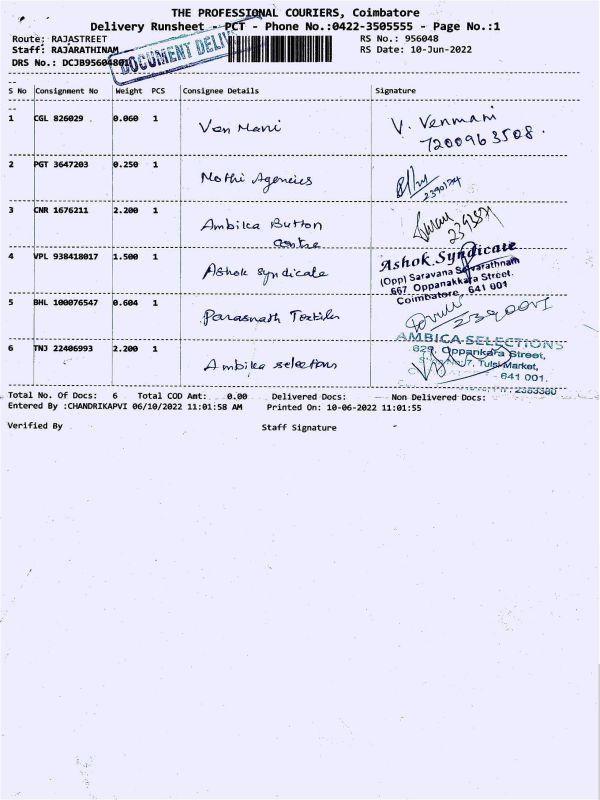 THE PROFESSIONAL COURIERS, Coimbatore
Delivery Runsheet - PCT - Phone No.:0422-3505555 - Page No.:1
Route: RAJASTREET RS No.: 956048
Staff: RAJARATHINAM RS Date: 10-Jun-2022
DRS No.: DCJB956048
DOCUMENT DELI
S No Consignment No Weight PCS Consignee Details Signature
1 CGL 826029 0.060 1 Ven Mani V. Venmani
7200963508.
2 PGT 3647203 0.250 1 Mothi Agencies
3 CNR 1676211 2.200 1 Ambika Button
Centre
4 VPL 938418017 1.500 1 Ashok Syndicate Ashok Syndicate
(Opp) Saravana Selvarathnam
667 Oppanakkara Street.
Coimbatore. 641 001
5 BHL 100076547 0.604 1 Parasnath Textiles
6 TNJ 22406993 2.200 1 Ambika selections AMBICA SELECTIONS
629, Oppankara Street,
7, Tulsi Market,
641 001.
2383380
Total No. Of Docs: 6 Total COD Amt: 0.00 Delivered Docs: Non Delivered Docs:
Entered By :CHANDRIKAPVI 06/10/2022 11:01:58 AM Printed On: 10-06-2022 11:01:55
Verified By Staff Signature